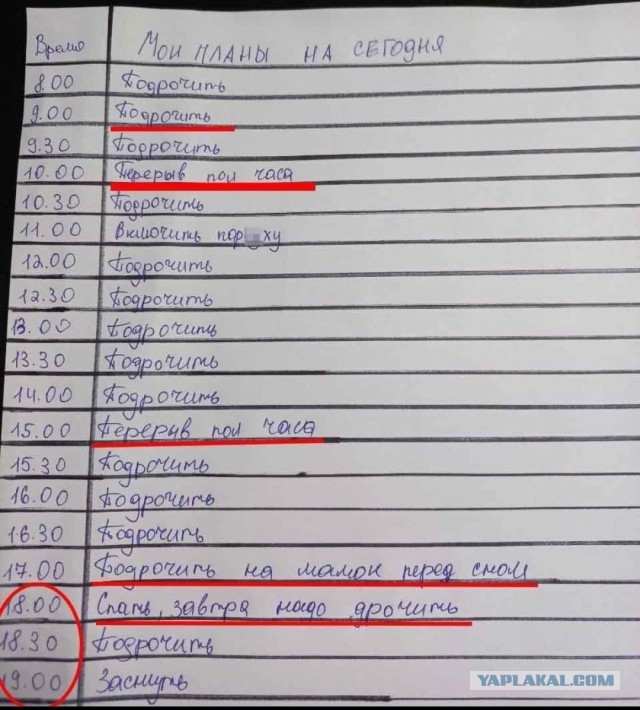 Время Мои планы на сегодня
8.00 Подрочить
9.00 Подрочить
9.30 Подрочить
10.00 Перерыв пол часа
10.30 Подрочить
11.00 Включить пор ху
12.00 Подрочить
12.30 Подрочить
13.00 Подрочить
13.30 Подрочить
14.00 Подрочить
15.00 Перерыв пол часа
15.30 Подрочить
16.00 Подрочить
16.30 Подрочить
17.00 Подрочить на мамон перед сном
18.00 Спать, завтра надо дрочить
18.30 Подрочить
19.00 Заснуть
YAPLAKAL.COM